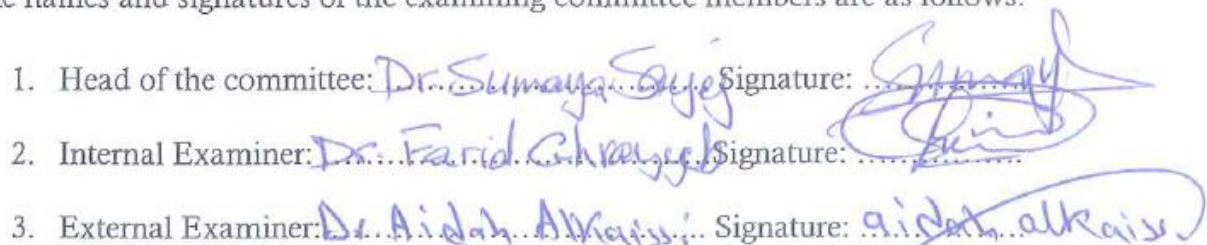 names and signatures of the examining committee members are as follows:
1. Head of the committee: Dr. Sumaya Sayej Signature: Sumaya
2. Internal Examiner: Dr. Farid Ghrayyeb Signature:
3. External Examiner: Dr. Aidah Alkaissi Signature: aidah alkaissi